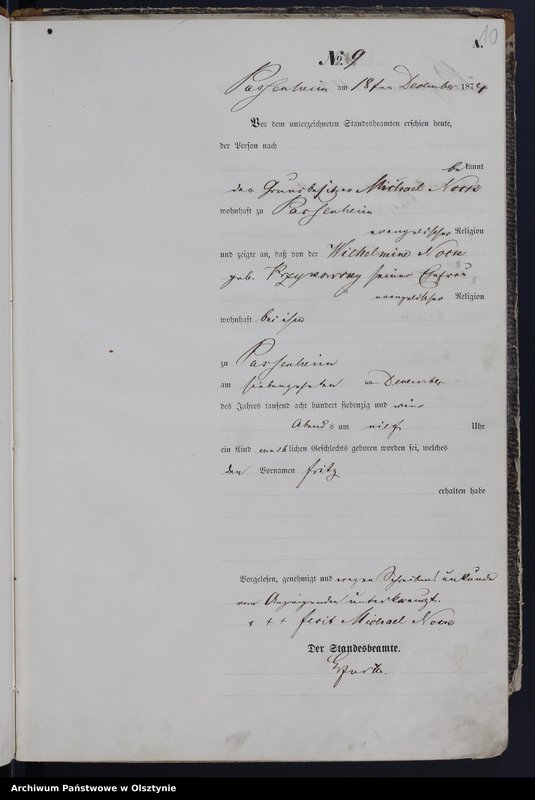 10
A.
No. 9
Passenheim am 18ten Dezember 1874
Vor dem unterzeichneten Standesbeamten erschien heute,
der Person nach
bekannt
der Grundbesitzer Michael
wohnhaft zu Passenheim
evangelischer Religion
und zeigte an, daß von der Wilhelmine
geb. seiner Ehefrau
evangelischer Religion
wohnhaft bei ihm
zu Passenheim
am siebenzehnten Dezember
des Jahres tausend acht hundert siebenzig und vier
Abends um Uhr
ein Kind männlichen Geschlechts geboren worden sei, welches
den Vornamen Fritz
erhalten habe
Vorgelesen, genehmigt und wegen Schreibensunkunde
vom Anzeigenden unterkreuzt.
+ + + fecit Michael
Der Standesbeamte.
Archiwum Państwowe w Olsztynie